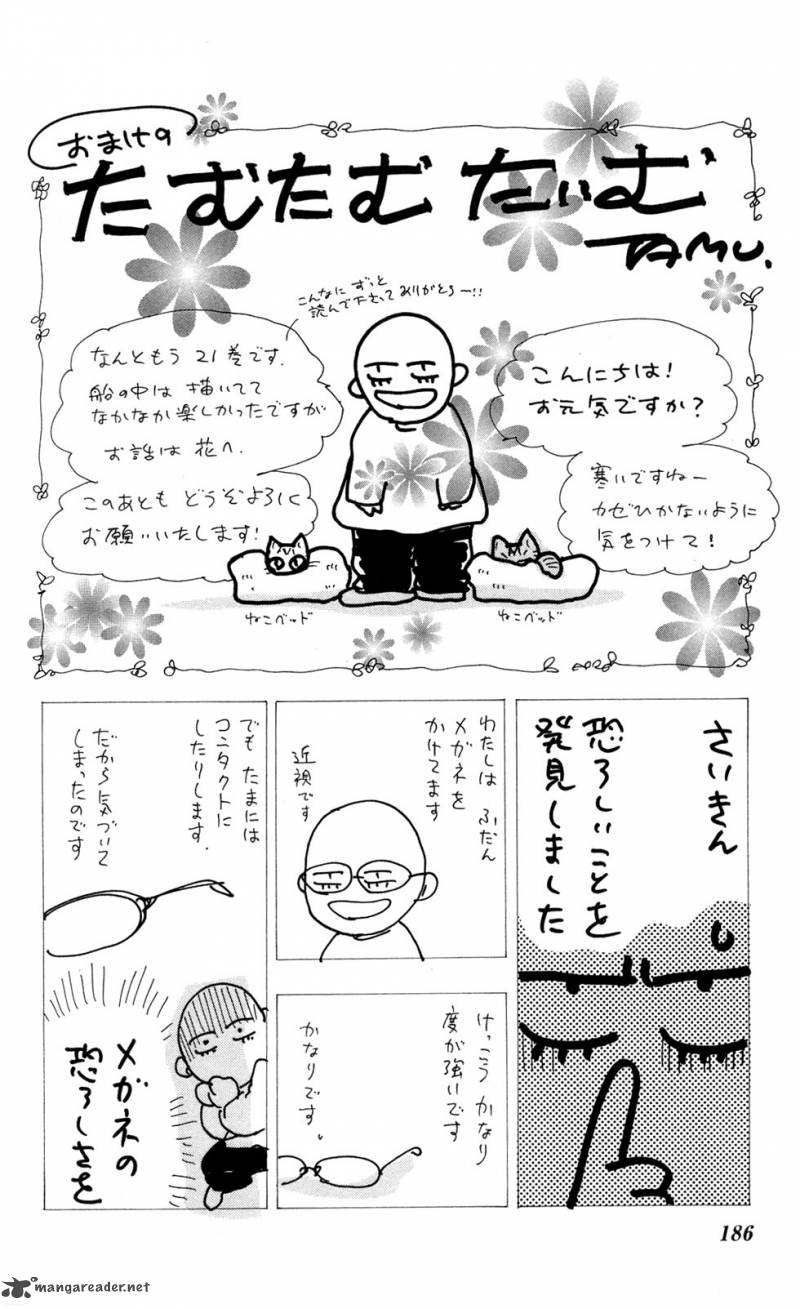 おまけの
たむたむ たいむ
TAMU.
こんにちは!
お元気ですか?
寒いですねー
カゼひかないように
気をつけて!
こんなに ずっと
読んで下さって ありがとう〜!!
なんと もう 21巻です.
船の中は 描いてて
なかなか楽しかったですが
お話は 花へ.
このあとも どうぞよろしく
お願いいたします!
ねこベッド
ねこベッド
さいきん
恐ろしいことを
発見しました
わたしは ふだん
メガネを
かけてます
近視です
けっこう かなり
度が強いです
かなりです。
でも たまには
コンタクトに
したりします.
だから気づいて
しまったのです
メガネの
恐ろしさを
186
mangareader.net